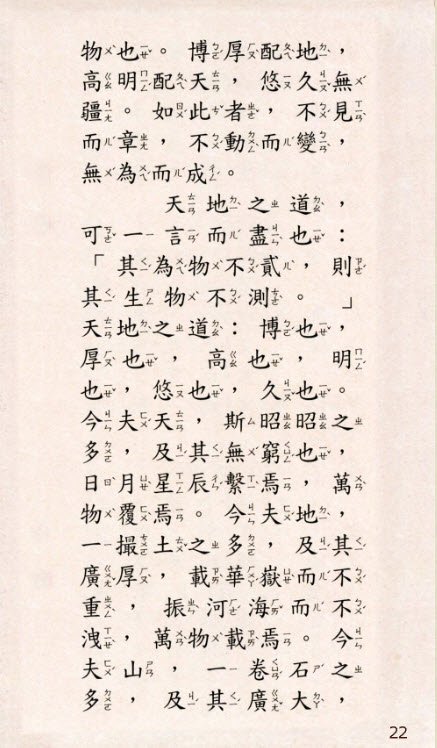 物也。博厚配地，
高明配天，悠久無
疆。如此者，不見
而章，不動而變，
無為而成。
天地之道，
可一言而盡也：
「其為物不貳，則
其生物不測。」
天地之道：博也，
厚也，高也，明
也，悠也，久也。
今夫天，斯昭昭之
多，及其無窮也，
日月星辰繫焉，萬
物覆焉。今夫地，
一撮土之多，及其
廣厚，載華嶽而不
重，振河海而不
洩，萬物載焉。今
夫山，一卷石之
多，及其廣大，
22